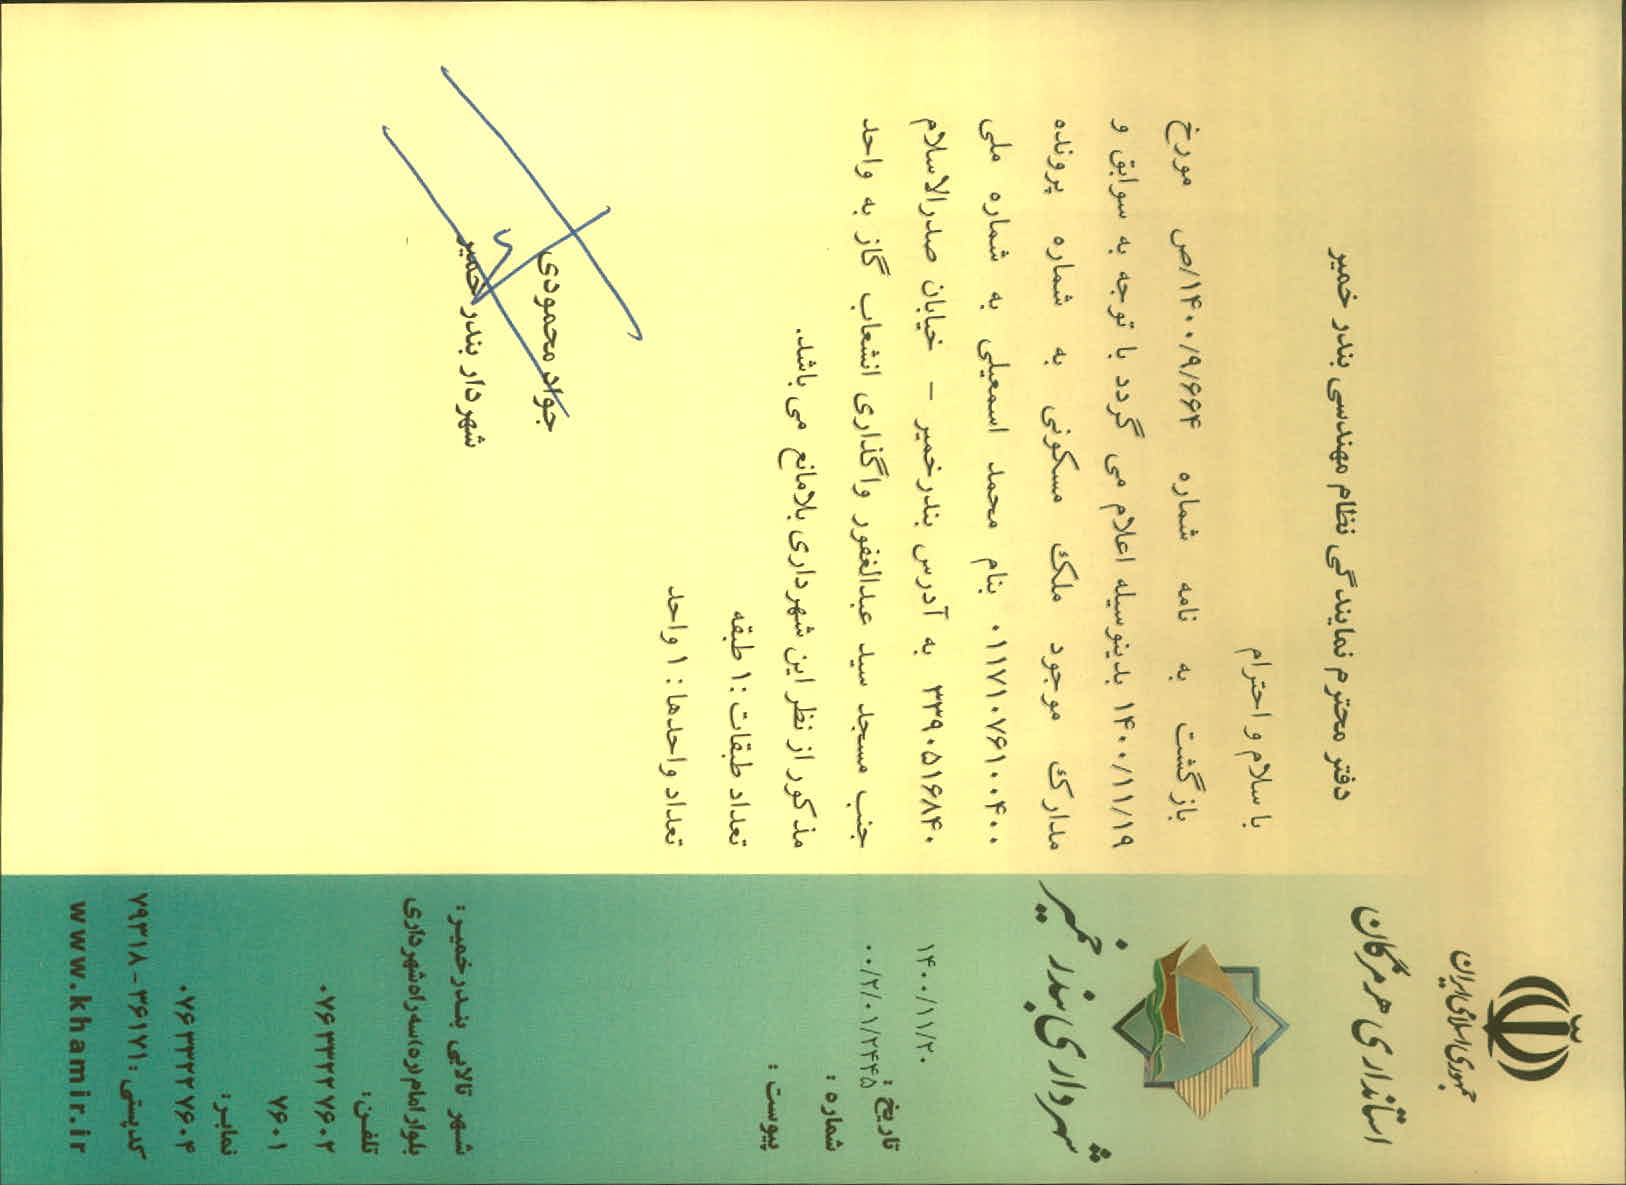 جمهوری اسلامی ایران
استانداری هرمزگان
شهرداری بندر خمیر
۱۴۰۰/۱۱/۲۰
تاریخ :
۰۰/۲/۰۱/۲۴۴۵
شماره :
پیوست :
دفتر محترم نمایندگی نظام مهندسی بندر خمیر
با سلام و احترام
بازگشت به نامه شماره ۱۴۰۰/۹/۶۶۴/ص مورخ
۱۴۰۰/۱۱/۱۹ بدینوسیله اعلام می گردد با توجه به سوابق و
مدارک موجود ملک مسکونی به شماره پرونده
۰۱۱۷۱۰۷۶۱۰۰۴۰۰ بنام محمد اسمعیلی به شماره ملی
۳۳۹۰۵۱۶۸۴۰ به آدرس بندرخمیر – خیابان صدرالاسلام
جنب مسجد سید عبدالغفور واگذاری انشعاب گاز به واحد
مذکور از نظر این شهرداری بلامانع می باشد.
تعداد طبقات :۱ طبقه
تعداد واحدها : ۱ واحد
جواد محمودی
شهردار بندر خمیر
شهر تالابی بندرخمیر:
بلوار امام (ره) سه راه شهرداری
تلفن:
۰۷۶۳۳۲۲۷۶۰۲
۷۶۰۱
نمابر:
۰۷۶۳۳۲۲۷۶۰۴
کدپستی: ۳۶۱۷۱-۷۹۳۱۸
www.khamir.ir